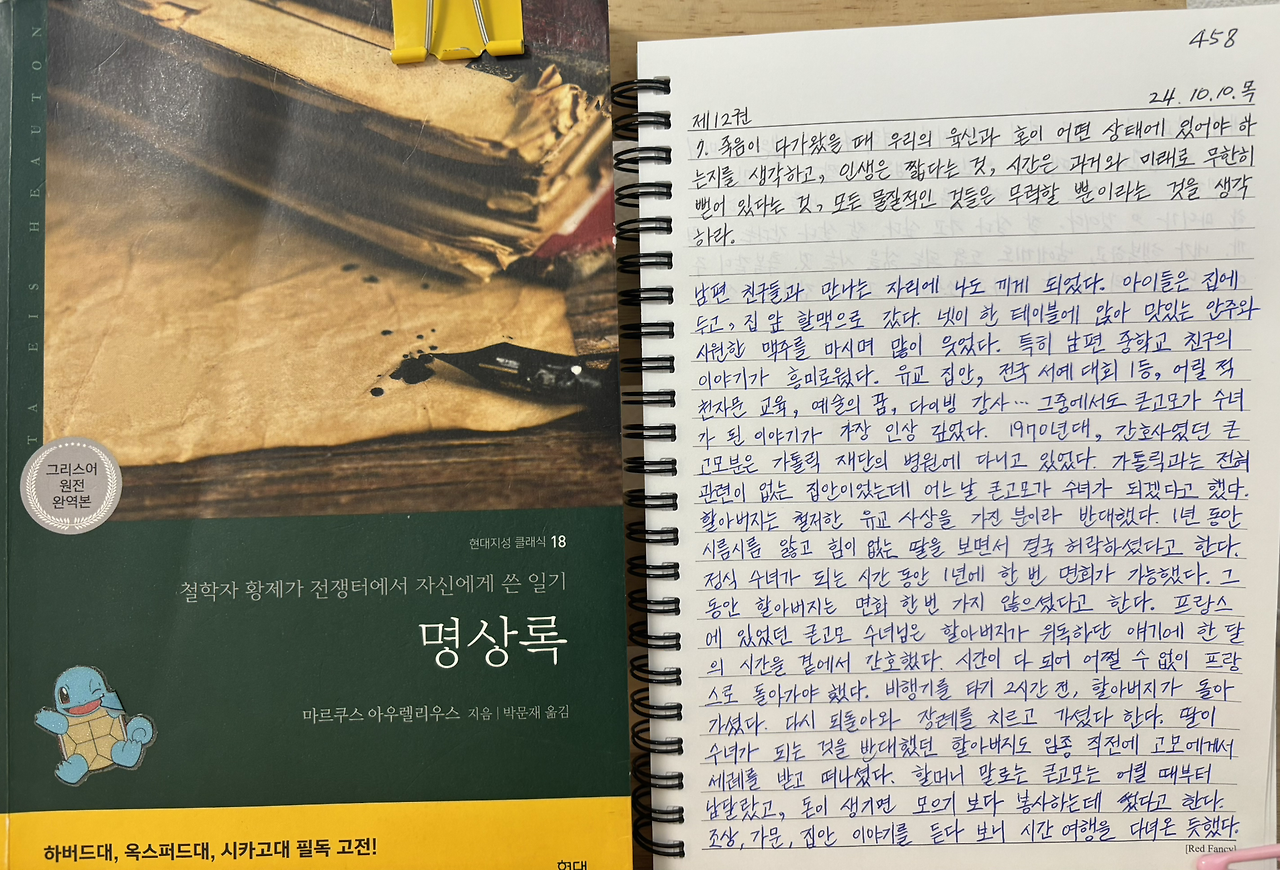 TA EIS HEAUTON
그리스어
원전
완역본
현대지성 클래식 18
철학자 황제가 전쟁터에서 자신에게 쓴 일기
명상록
마르쿠스 아우렐리우스 지음 | 박문재 옮김
하버드대, 옥스퍼드대, 시카고대 필독 고전!
현대
458
24. 10. 10. 목
제12권
7. 죽음이 다가왔을 때 우리의 육신과 혼이 어떤 상태에 있어야 하
는지를 생각하고, 인생은 짧다는 것, 시간은 과거와 미래로 무한히
뻗어 있다는 것, 모든 물질적인 것들은 무력할 뿐이라는 것을 생각
하라.
남편 친구들과 만나는 자리에 나도 끼게 되었다. 아이들은 집에
두고, 집 앞 할맥으로 갔다. 넷이 한 테이블에 앉아 맛있는 안주와
시원한 맥주를 마시며 많이 웃었다. 특히 남편 중학교 친구의
이야기가 흥미로웠다. 유교 집안, 전국 서예 대회 1등, 어릴 적
천자문 교육, 예술의 꿈, 다이빙 강사… 그중에서도 큰고모가 수녀
가 된 이야기가 가장 인상 깊었다. 1970년대, 간호사였던 큰
고모분은 가톨릭 재단의 병원에 다니고 있었다. 가톨릭과는 전혀
관련이 없는 집안이었는데 어느날 큰고모가 수녀가 되겠다고 했다.
할아버지는 철저한 유교 사상을 가진 분이라 반대했다. 1년 동안
시름시름 앓고 힘이 없는 딸을 보면서 결국 허락하셨다고 한다.
정식 수녀가 되는 시간 동안 1년에 한 번 면회가 가능했다. 그
동안 할아버지는 면회 한번 가지 않으셨다고 한다. 프랑스
에 있었던 큰고모 수녀님은 할아버지가 위독하단 얘기에 한 달
의 시간을 곁에서 간호했다. 시간이 다 되어 어쩔 수 없이 프랑
스로 돌아가야 했다. 비행기를 타기 2시간 전, 할아버지가 돌아
가셨다. 다시 되돌아와 장례를 치르고 가셨다 한다. 딸이
수녀가 되는 것을 반대했던 할아버지도 임종 직전에 고모에게서
세례를 받고 떠나셨다. 할머니 말로는 큰고모는 어릴 때부터
남달랐고, 돈이 생기면 모으기 보다 봉사하는데 썼다고 한다.
조상, 가문, 집안 이야기를 듣다 보니 시간 여행을 다녀온 듯했다.
[Red Fancy]